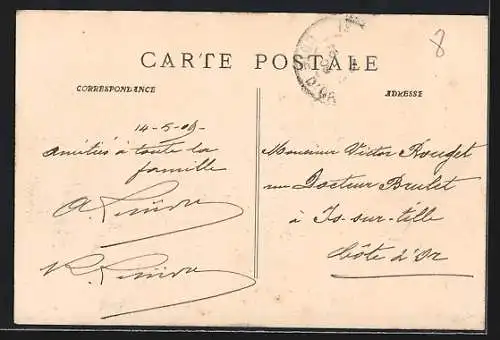 CARTE POSTALE
8
CORRESPONDANCE
ADRESSE
14-5-04
Amitiés à toute la
famille
A.
Monsieur Victor Rouget
rue Docteur Brulet
à Is-sur-tille
Côte d'Or